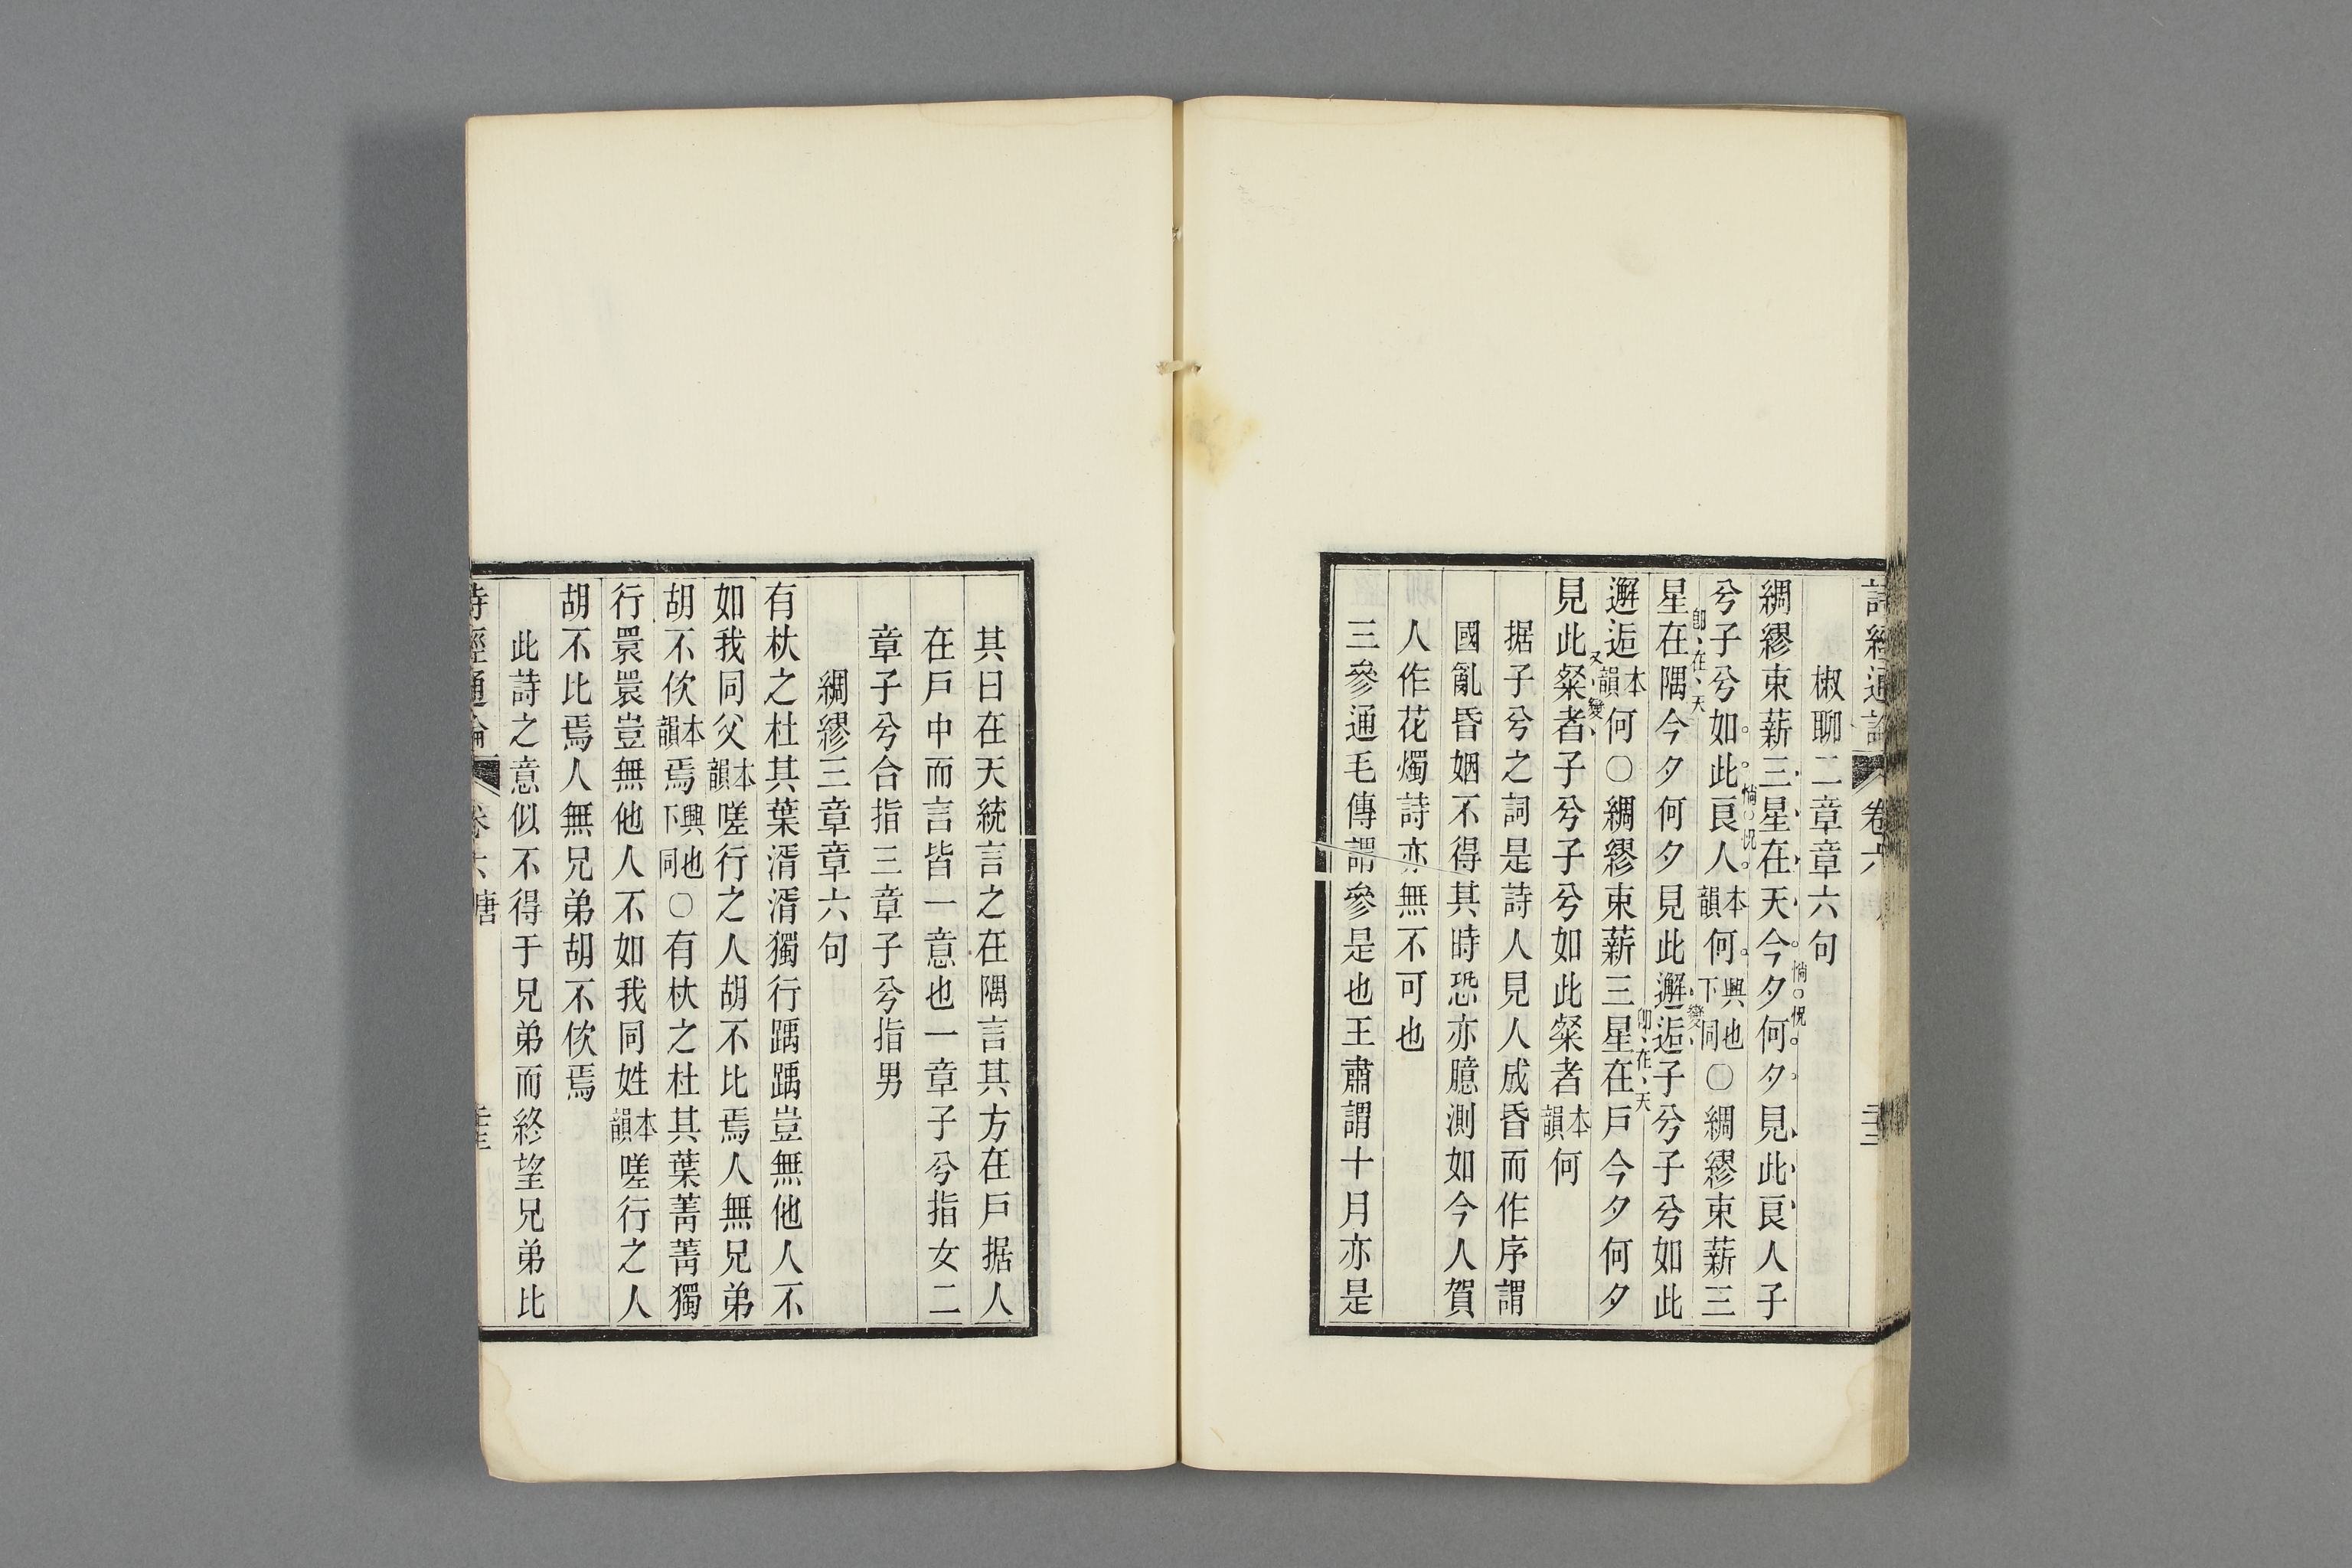 詩經通論 卷六
椒聊二章章六句
綢繆束薪三星在天今夕何夕見此良人子
惝怳
兮子兮如此良人本韻何興也下同○綢繆束薪三
惝怳
星在隅今夕何夕見此邂逅子兮子兮如此
卽在天
變
邂逅本韻何○綢繆束薪三星在戶今夕何夕
卽在天
見此粲者子兮子兮如此粲者本韻何
又變
据子兮之詞是詩人見人成昏而作序謂
國亂昏姻不得其時恐亦臆測如今人賀
人作花燭詩亦無不可也
三參通毛傳謂參是也王肅謂十月亦是
其曰在天統言之在隅言其方在戶据人
在戶中而言皆一意也一章子兮指女二
章子兮合指三章子兮指男
綢繆三章章六句
有杕之杜其葉湑湑獨行踽踽豈無他人不
如我同父本韻嗟行之人胡不比焉人無兄弟
胡不佽本韻焉興也下同○有杕之杜其葉菁菁獨
行睘睘豈無他人不如我同姓本韻嗟行之人
胡不比焉人無兄弟胡不佽焉
此詩之意似不得于兄弟而終望兄弟比
詩經通論 卷六 唐